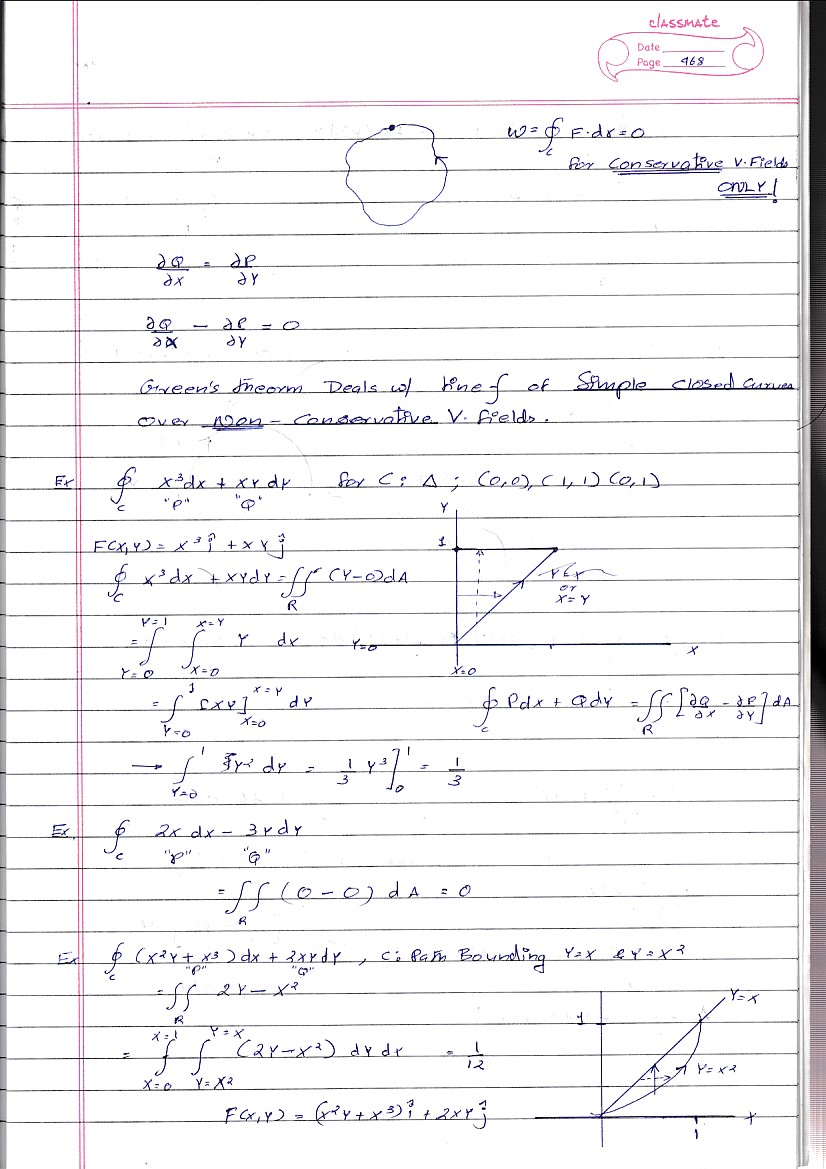 classmate
Date
Page 468
W = ∮_C F·dr = 0
for Conservative V. Fields
ONLY!
∂Q/∂X = ∂P/∂Y
∂Q/∂X − ∂P/∂Y = 0
Green's Theorm Deals w/ line ∫ of Simple closed Curves
Over Non - Conservative V. Fields.
Ex ∮_C X³dx + XY dy for C: Δ ; (0,0), (1,1) (0,1)
"P" "Q"
F(X,Y) = X³ î + XY ĵ
∮_C X³dx + XYdY = ∬_R (Y-0)dA
= ∫_{Y=0}^{Y=1} ∫_{X=0}^{X=Y} Y dx
= ∫_{Y=0}^{1} [XY]_{X=0}^{X=Y} dY
→ ∫_{Y=0}^{1} Y² dY = 1/3 Y³]_0^1 = 1/3
Y
1
or
X=Y
Y=0
X
X=0
∮_C Pdx + Qdy = ∬_R [∂Q/∂X − ∂P/∂Y] dA
Ex. ∮_C 2X dx − 3Y dY
"P" "Q"
= ∬_R (0−0) dA = 0
Ex ∮_C (X²Y + X³) dx + 2XY dY , C: Path Bounding Y=X & Y=X²
"P" "Q"
= ∬_R 2Y − X²
= ∫_{X=0}^{X=1} ∫_{Y=X²}^{Y=X} (2Y−X²) dY dx = 1/12
F(X,Y) = (X²Y + X³) î + 2XY ĵ
Y=X
1
Y=X²
X
1